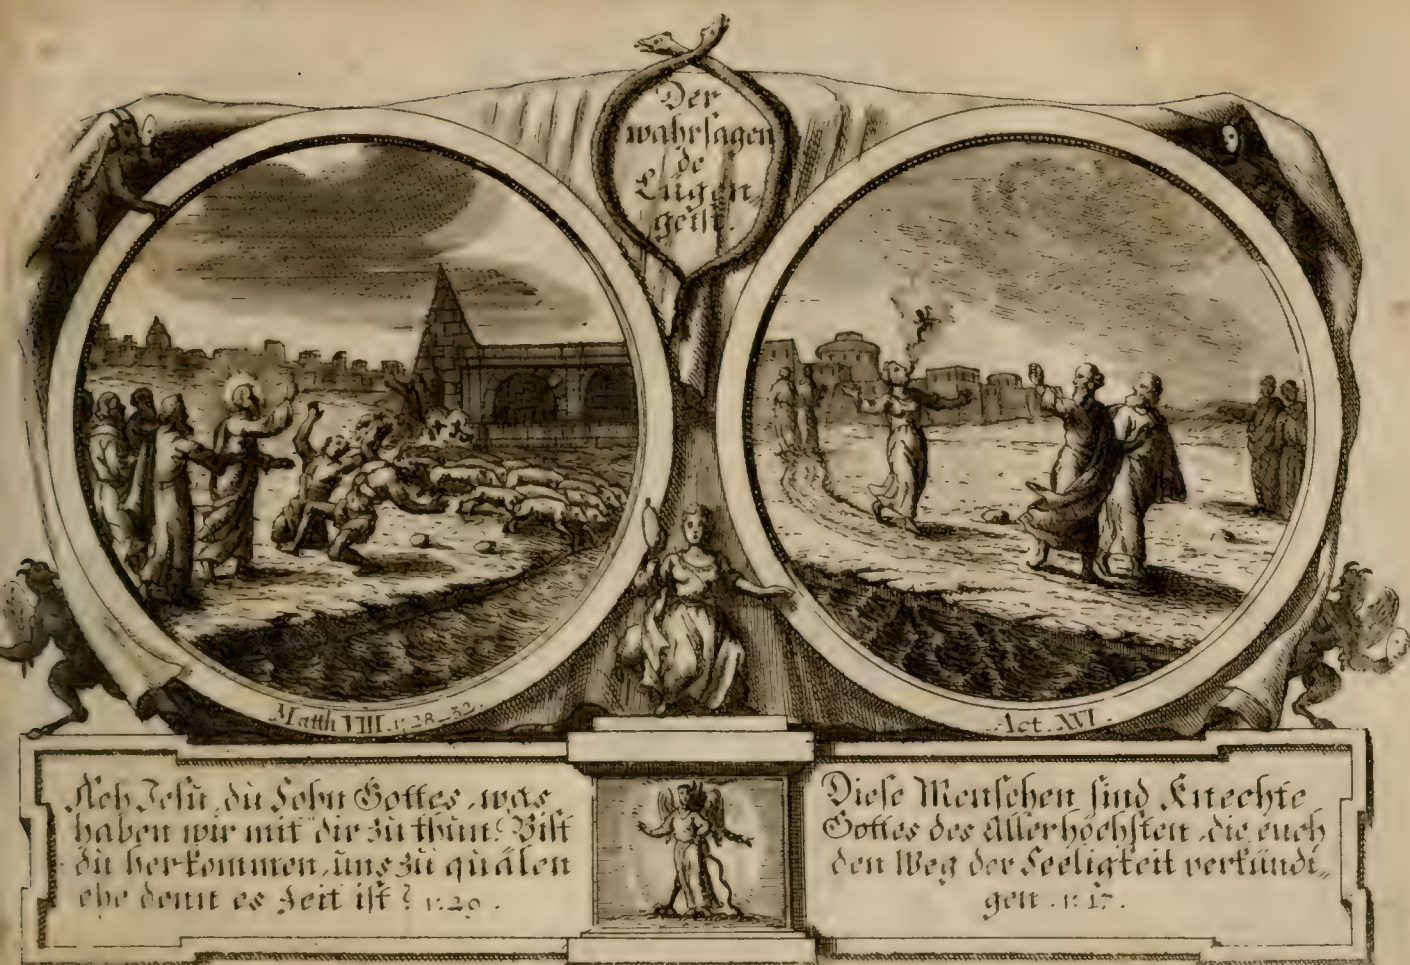 Der
wahrsagen
de
Lügen,
geist.
Matth VIII. v. 28_32.
Act. XVI.
Ach Jesu, du Sohn Gottes, was
haben wir mit dir zu thun? Bist
du herkommen, uns zu quälen
ehe denn es Zeit ist? v. 29.
Diese Menschen sind Knechte
Gottes des Allerhöchsten, die euch
den Weg der Seeligkeit verkündi„
gen. v. 17.